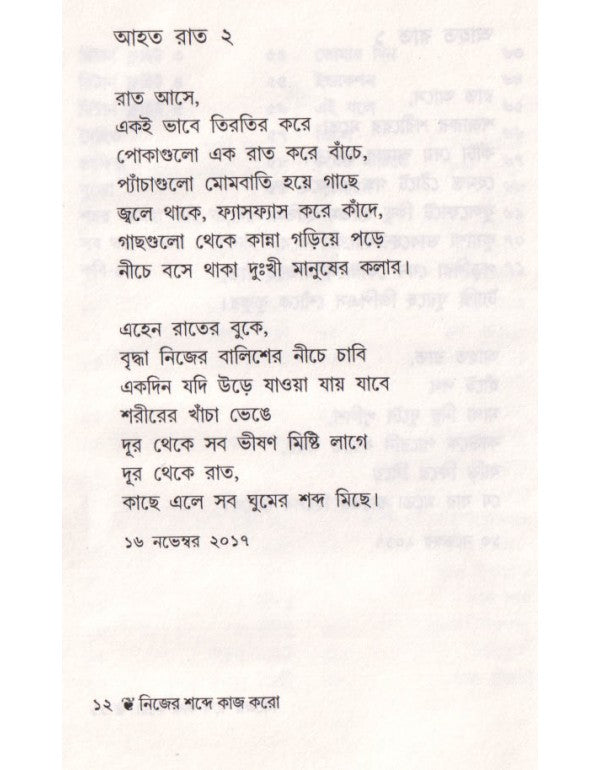 আহত রাত ২
রাত আসে,
একই ভাবে তিরতির করে
পোকাগুলো এক রাত করে বাঁচে,
প্যাঁচাগুলো মোমবাতি হয়ে গাছে
জ্বলে থাকে, ফ্যাসফ্যাস করে কাঁদে,
গাছগুলো থেকে কান্না গড়িয়ে পড়ে
নীচে বসে থাকা দুঃখী মানুষের কলার।
এহেন রাতের বুকে,
বৃদ্ধা নিজের বালিশের নীচে চাবি
একদিন যদি উড়ে যাওয়া যায় যাবে
শরীরের খাঁচা ভেঙে
দূর থেকে সব ভীষণ মিষ্টি লাগে
দূর থেকে রাত,
কাছে এলে সব ঘুমের শব্দ মিছে।
১৬ নভেম্বর ২০১৭
১২ ❦ নিজের শব্দে কাজ করো